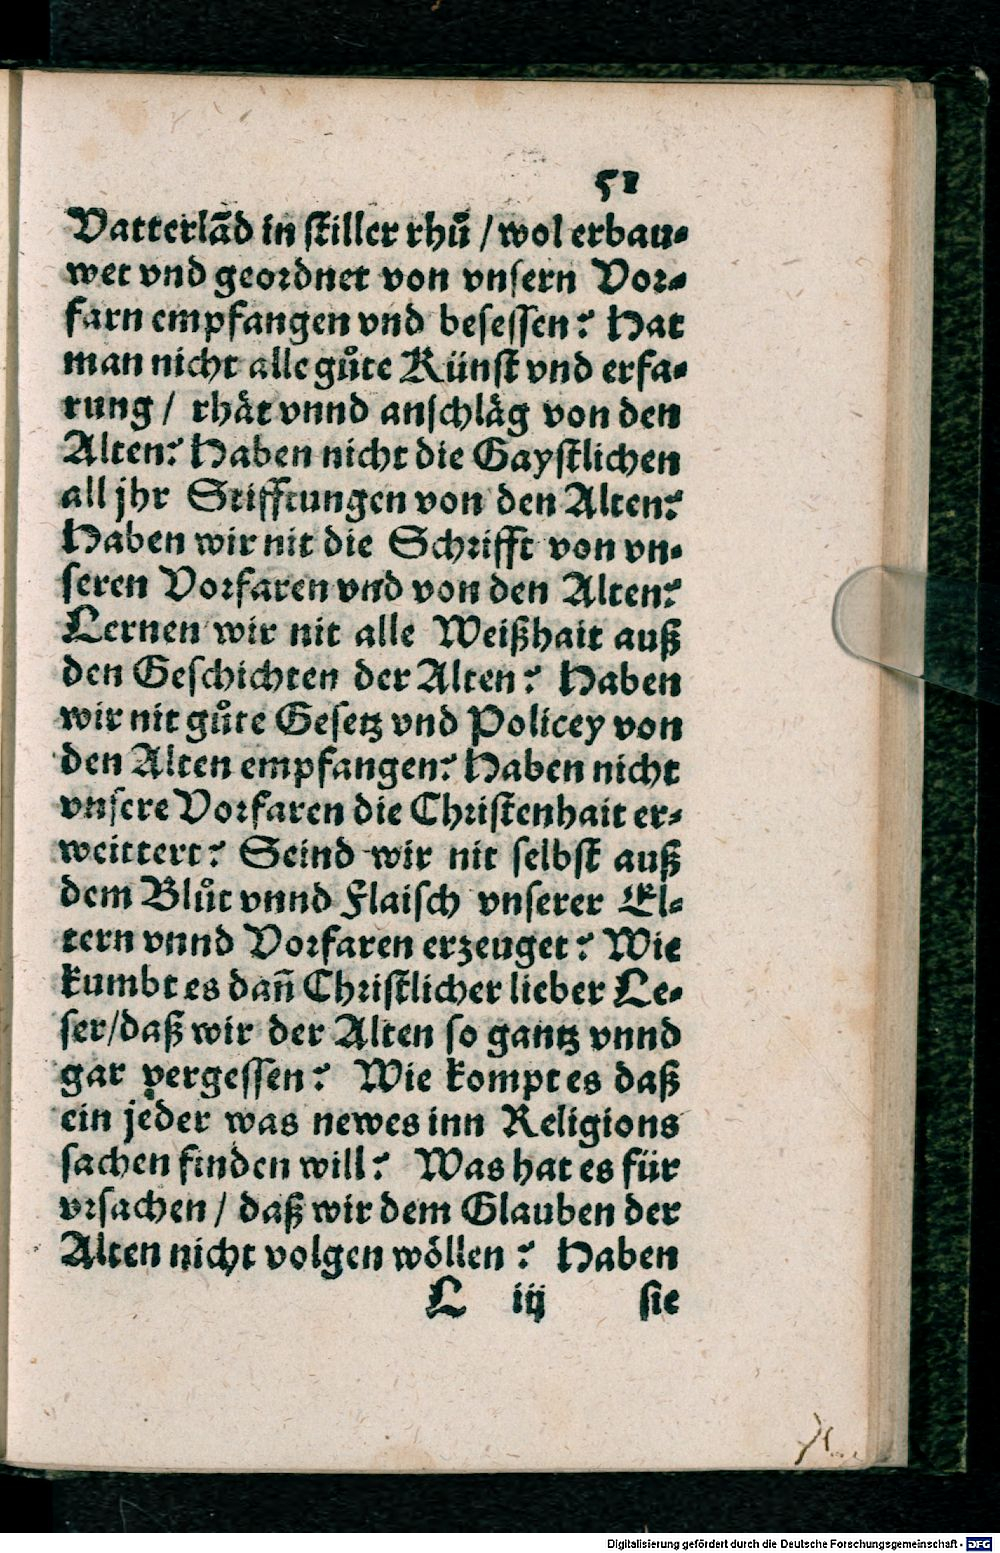 51
Vatterlãd in stiller rhuͦ / wol erbau⸗
wet vnd geordnet von vnsern Vor⸗
farn empfangen vnd besessen? Hat
man nicht alle guͦte Künst vnd erfa⸗
rung / rhät vnnd anschläg von den
Alten? Haben nicht die Gaystlichen
all jhr Stifftungen von den Alten?
Haben wir nit die Schrifft von vn⸗
seren Vorfaren vnd von den Alten?
Lernen wir nit alle Weißhait auß
den Geschichten der Alten? Haben
wir nit guͦte Gesetz vnd Policey von
den Alten empfangen? Haben nicht
vnsere Vorfaren die Christenhait er⸗
weittert? Seind wir nit selbst auß
dem Bluͦt vnnd Flaisch vnserer El⸗
tern vnnd Vorfaren erzeuget? Wie
kumbt es dañ Christlicher lieber Le⸗
ser/daß wir der Alten so gantz vnnd
gar vergessen? Wie kompt es daß
ein jeder was newes inn Religions
sachen finden will? Was hat es für
vrsachen / daß wir dem Glauben der
Alten nicht volgen wöllen? Haben
L iij sie
Digitalisierung gefördert durch die Deutsche Forschungsgemeinschaft - DFG